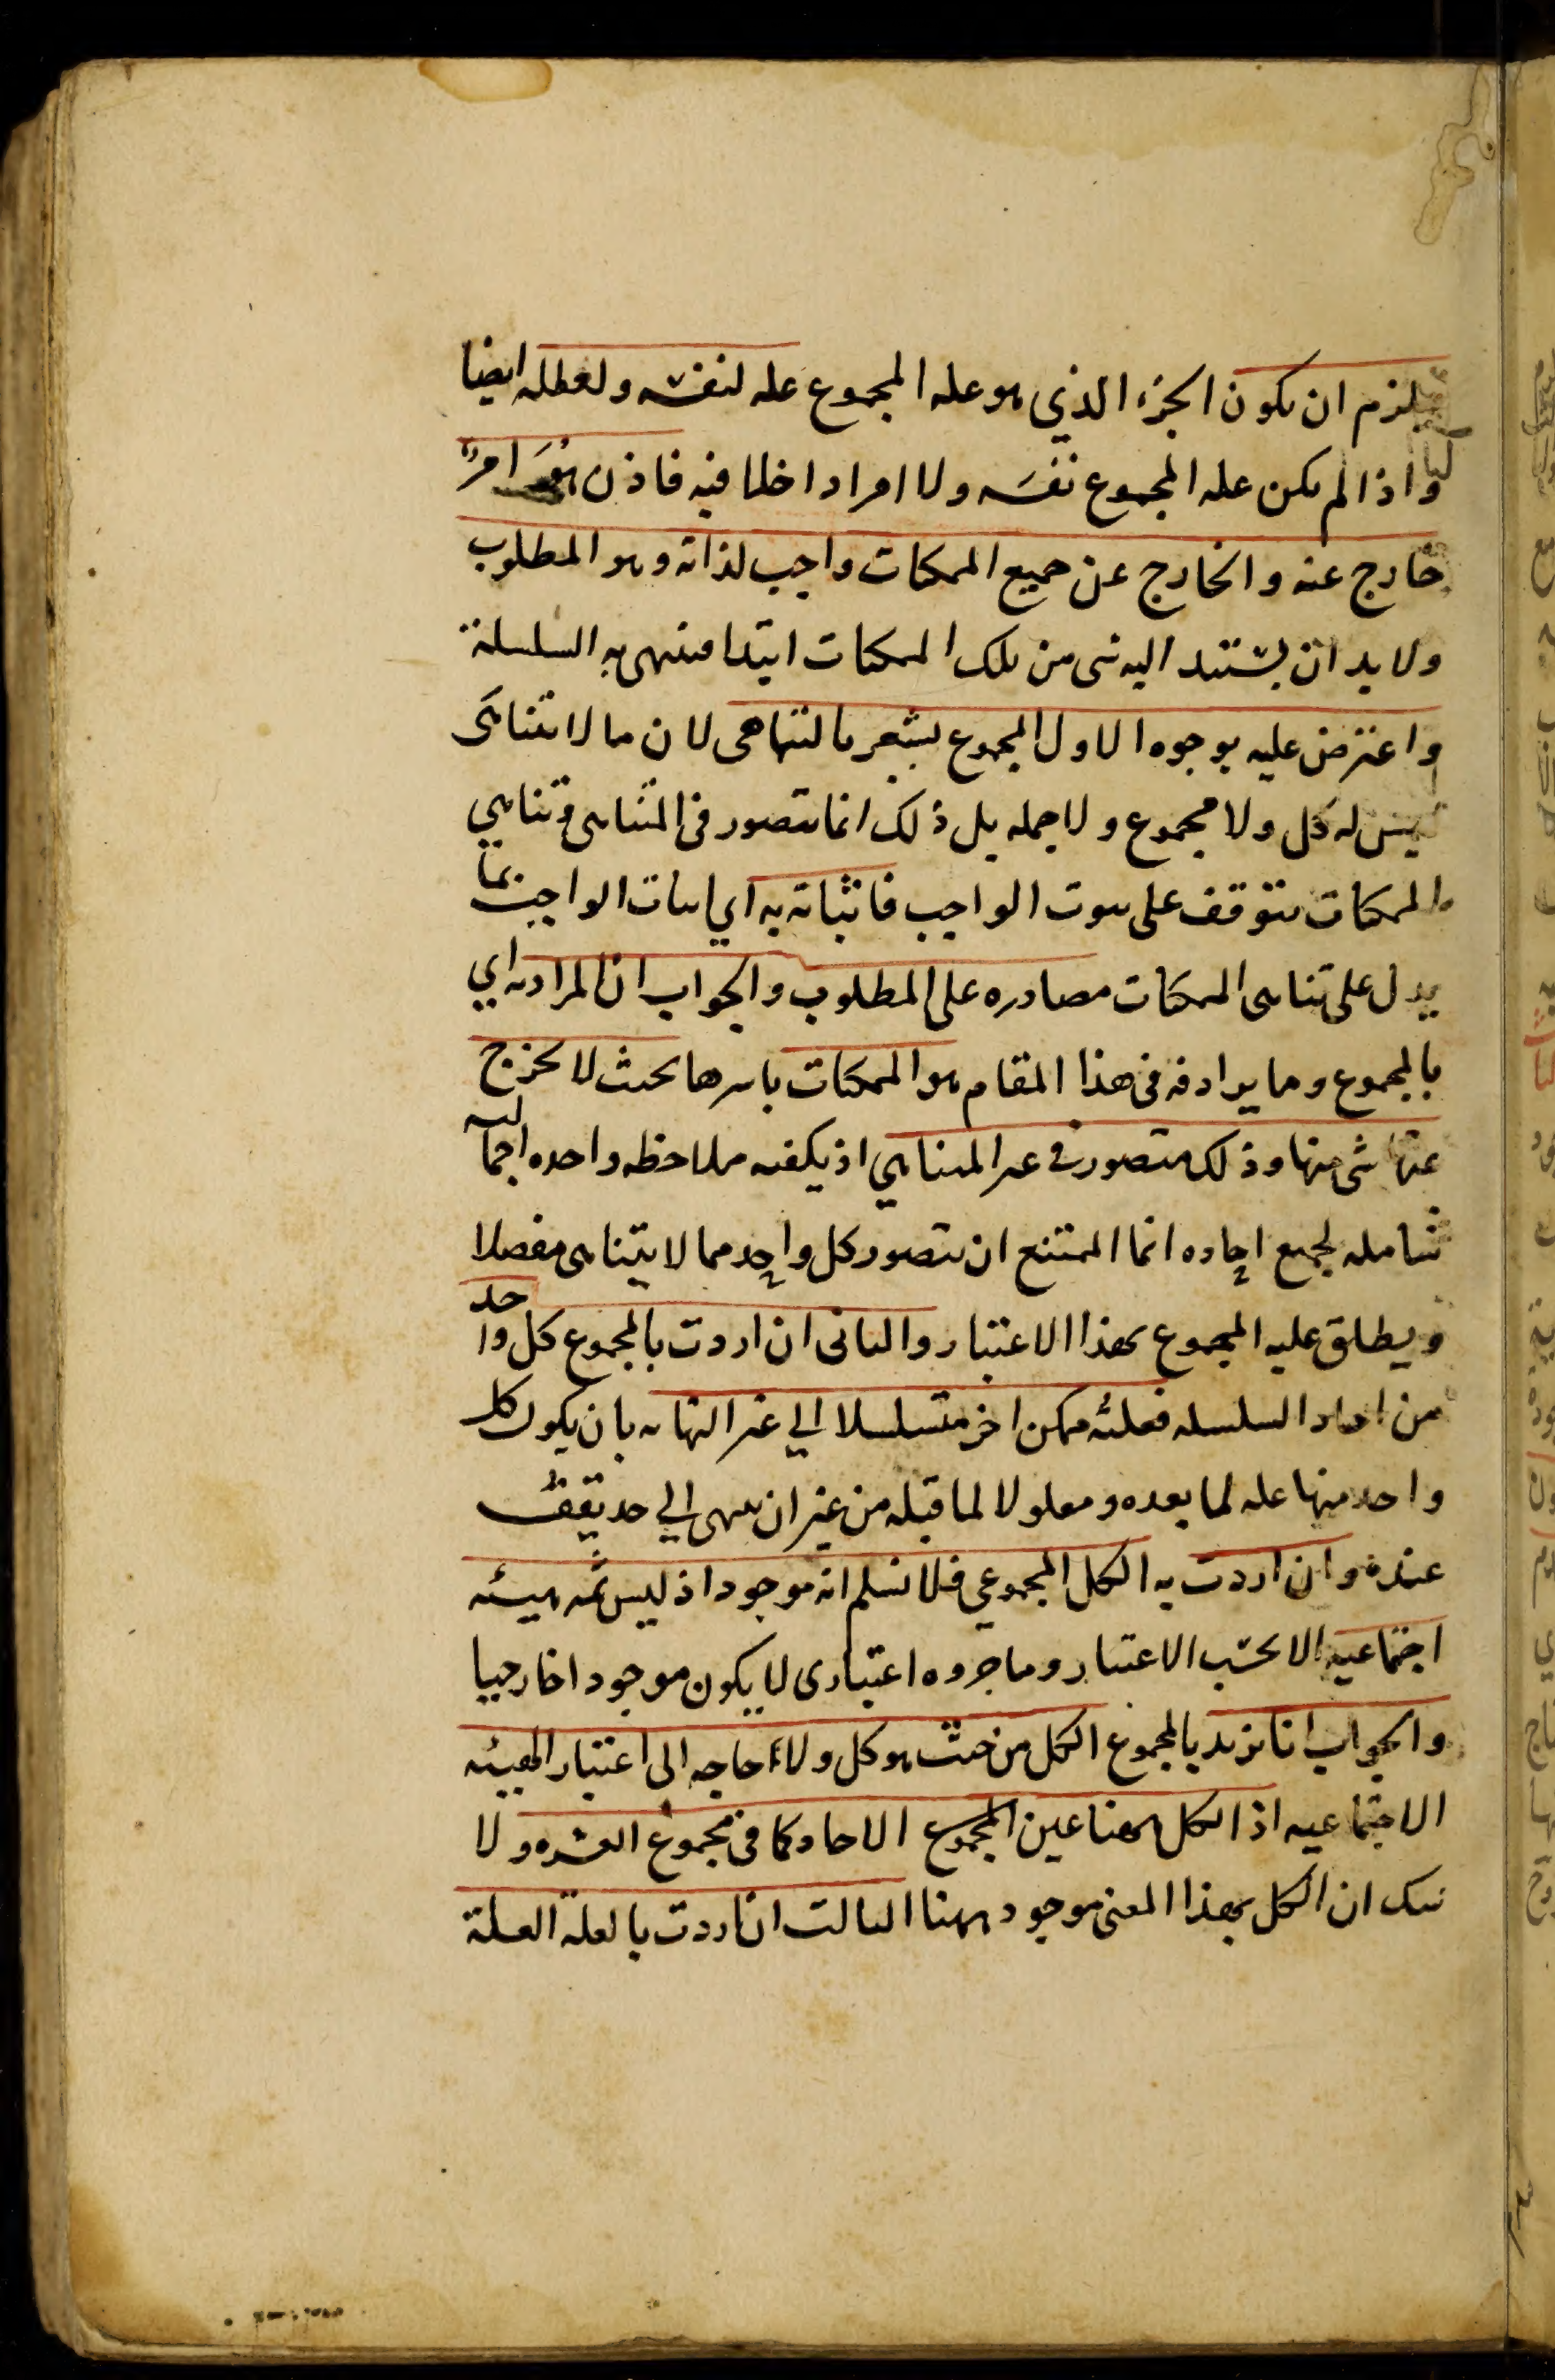 فيلزم ان يكون الجزء الذي هو علة المجموع علة لنفسه ولعلله ايضا
واذا لم يكن علة المجموع نفسه ولا امرا داخلا فيه فاذن هو امر
خارج عنه والخارج عن جميع الممكنات واجب لذاته وهو المطلوب
ولا بد ان يستند اليه شى من تلك الممكنات ابتدا فينتهى به السلسلة
واعترض عليه بوجوه الاول المجموع يشعر بالتناهى لان ما لا يتناهى
ليس له كل ولا مجموع ولا جملة بل ذلك انما يتصور فى المتناهى وتناهي
الممكنات يتوقف على ثبوت الواجب فاثباته به اي اثبات الواجب بما
يدل على تناهى الممكنات مصادره على المطلوب والجواب ان المراد به اي
بالمجموع وما يرادفه فى هذا المقام هو الممكنات باسرها بحيث لا يخرج
عنها شى منها وذلك متصور فى غير المتناهي اذ يكفيه ملاحظة واحده اجمالية
شاملة لجميع احاده انما الممتنع ان يتصور كل واحد مما لا يتناهى مفصلا
ويطلق عليه المجموع بهذا الاعتبار والثانى ان اردت بالمجموع كل واحد
من احاد السلسله فعلته ممكن اخر متسلسلا الي غير النهاية بان يكون كل
واحد منها علة لما بعده ومعلولا لما قبله من غير ان ينتهى الي حد يقف
عنده وان اردت به الكل المجموعي فلا نسلم انه موجود اذ ليس ثمه هيئه
اجتماعيه الا بحسب الاعتبار وما جزوه اعتبارى لا يكون موجودا خارجيا
والجواب انا نريد بالمجموع الكل من حيث هو كل ولا حاجه الى اعتبار الهيئه
الاجتماعيه اذ الكل ههنا عين المجموع الاحاد كما فى مجموع العشره ولا
شك ان الكل بهذا المعنى موجود ههنا الثالث ان اردت بالعلة العلة